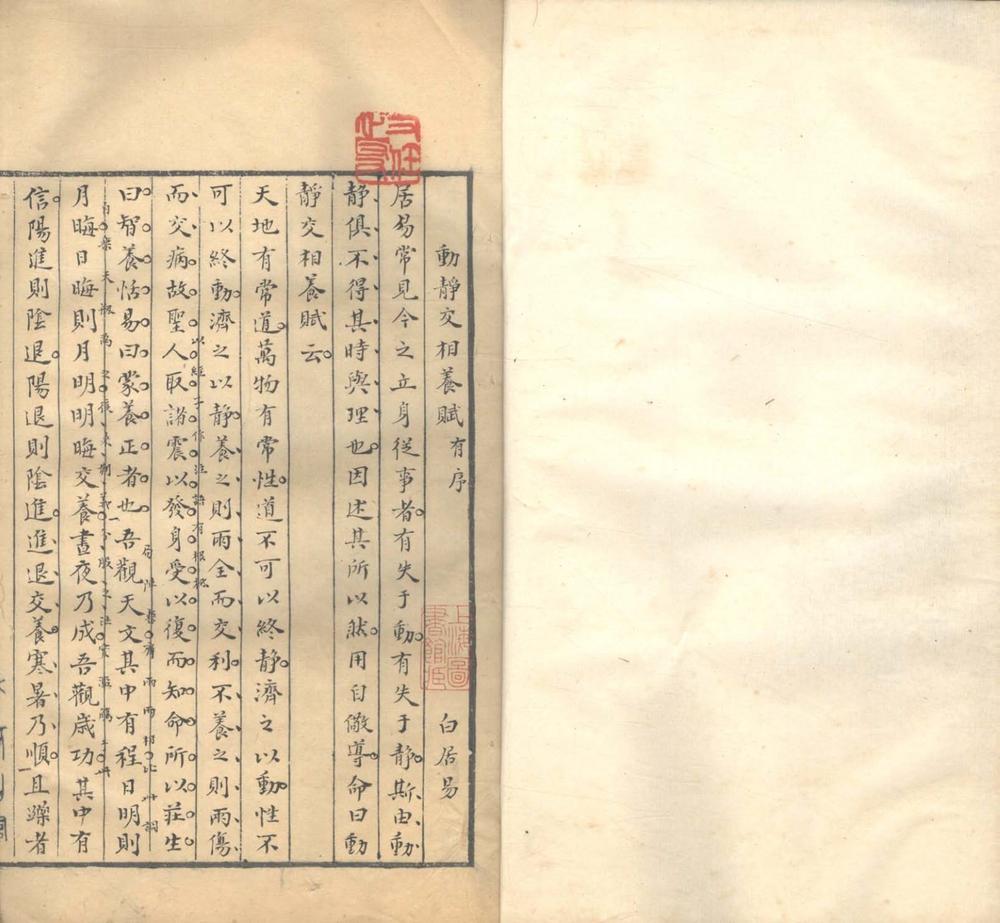 動靜交相養賦有序 白居易
居易常見今之立身從事者有失于動有失于靜斯由動
靜俱不得其時與理也因述其所以然用自儆導命曰動
靜交相養賦云
天地有常道萬物有常性道不可以終靜濟之以動性不
可以終動濟之以靜養之則兩全而交利不養之則兩傷
而交病故聖人取諸震以發身受以復而知命所以莊生
曰智養恬易曰蒙養正者也吾觀天文其中有程日明則
月晦日晦則月明明晦交養晝夜乃成吾觀歲功其中有
信陽進則陰退陽退則陰進進退交養寒暑乃順且躁者
上海圖書館藏